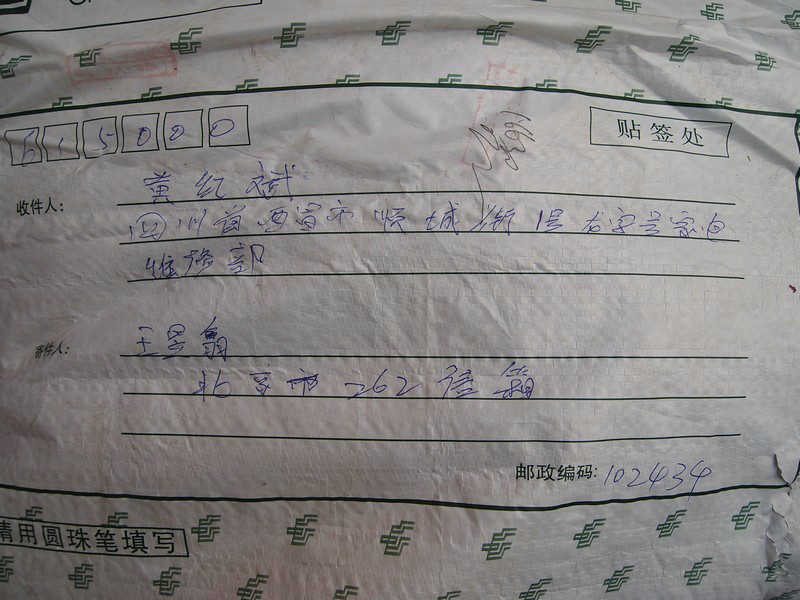 615000
贴签处
收件人: 黄红斌
四川省西昌市顺城街 号家电
维修部
寄件人: 王
北京市262信箱
邮政编码: 102434
请用圆珠笔填写